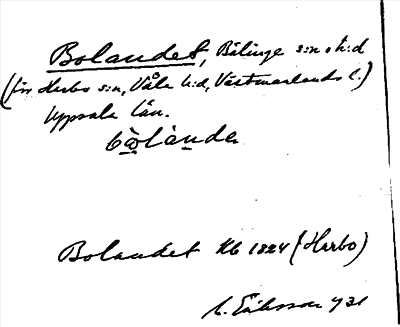 Bolandet, Bälinge s:n o h:d
(förr Harbo s:n, Våla h:d, Västmanlands l.)
Uppsala län.
Bolandet Kb 1824 (Harbo)
M. Eriksson 1931